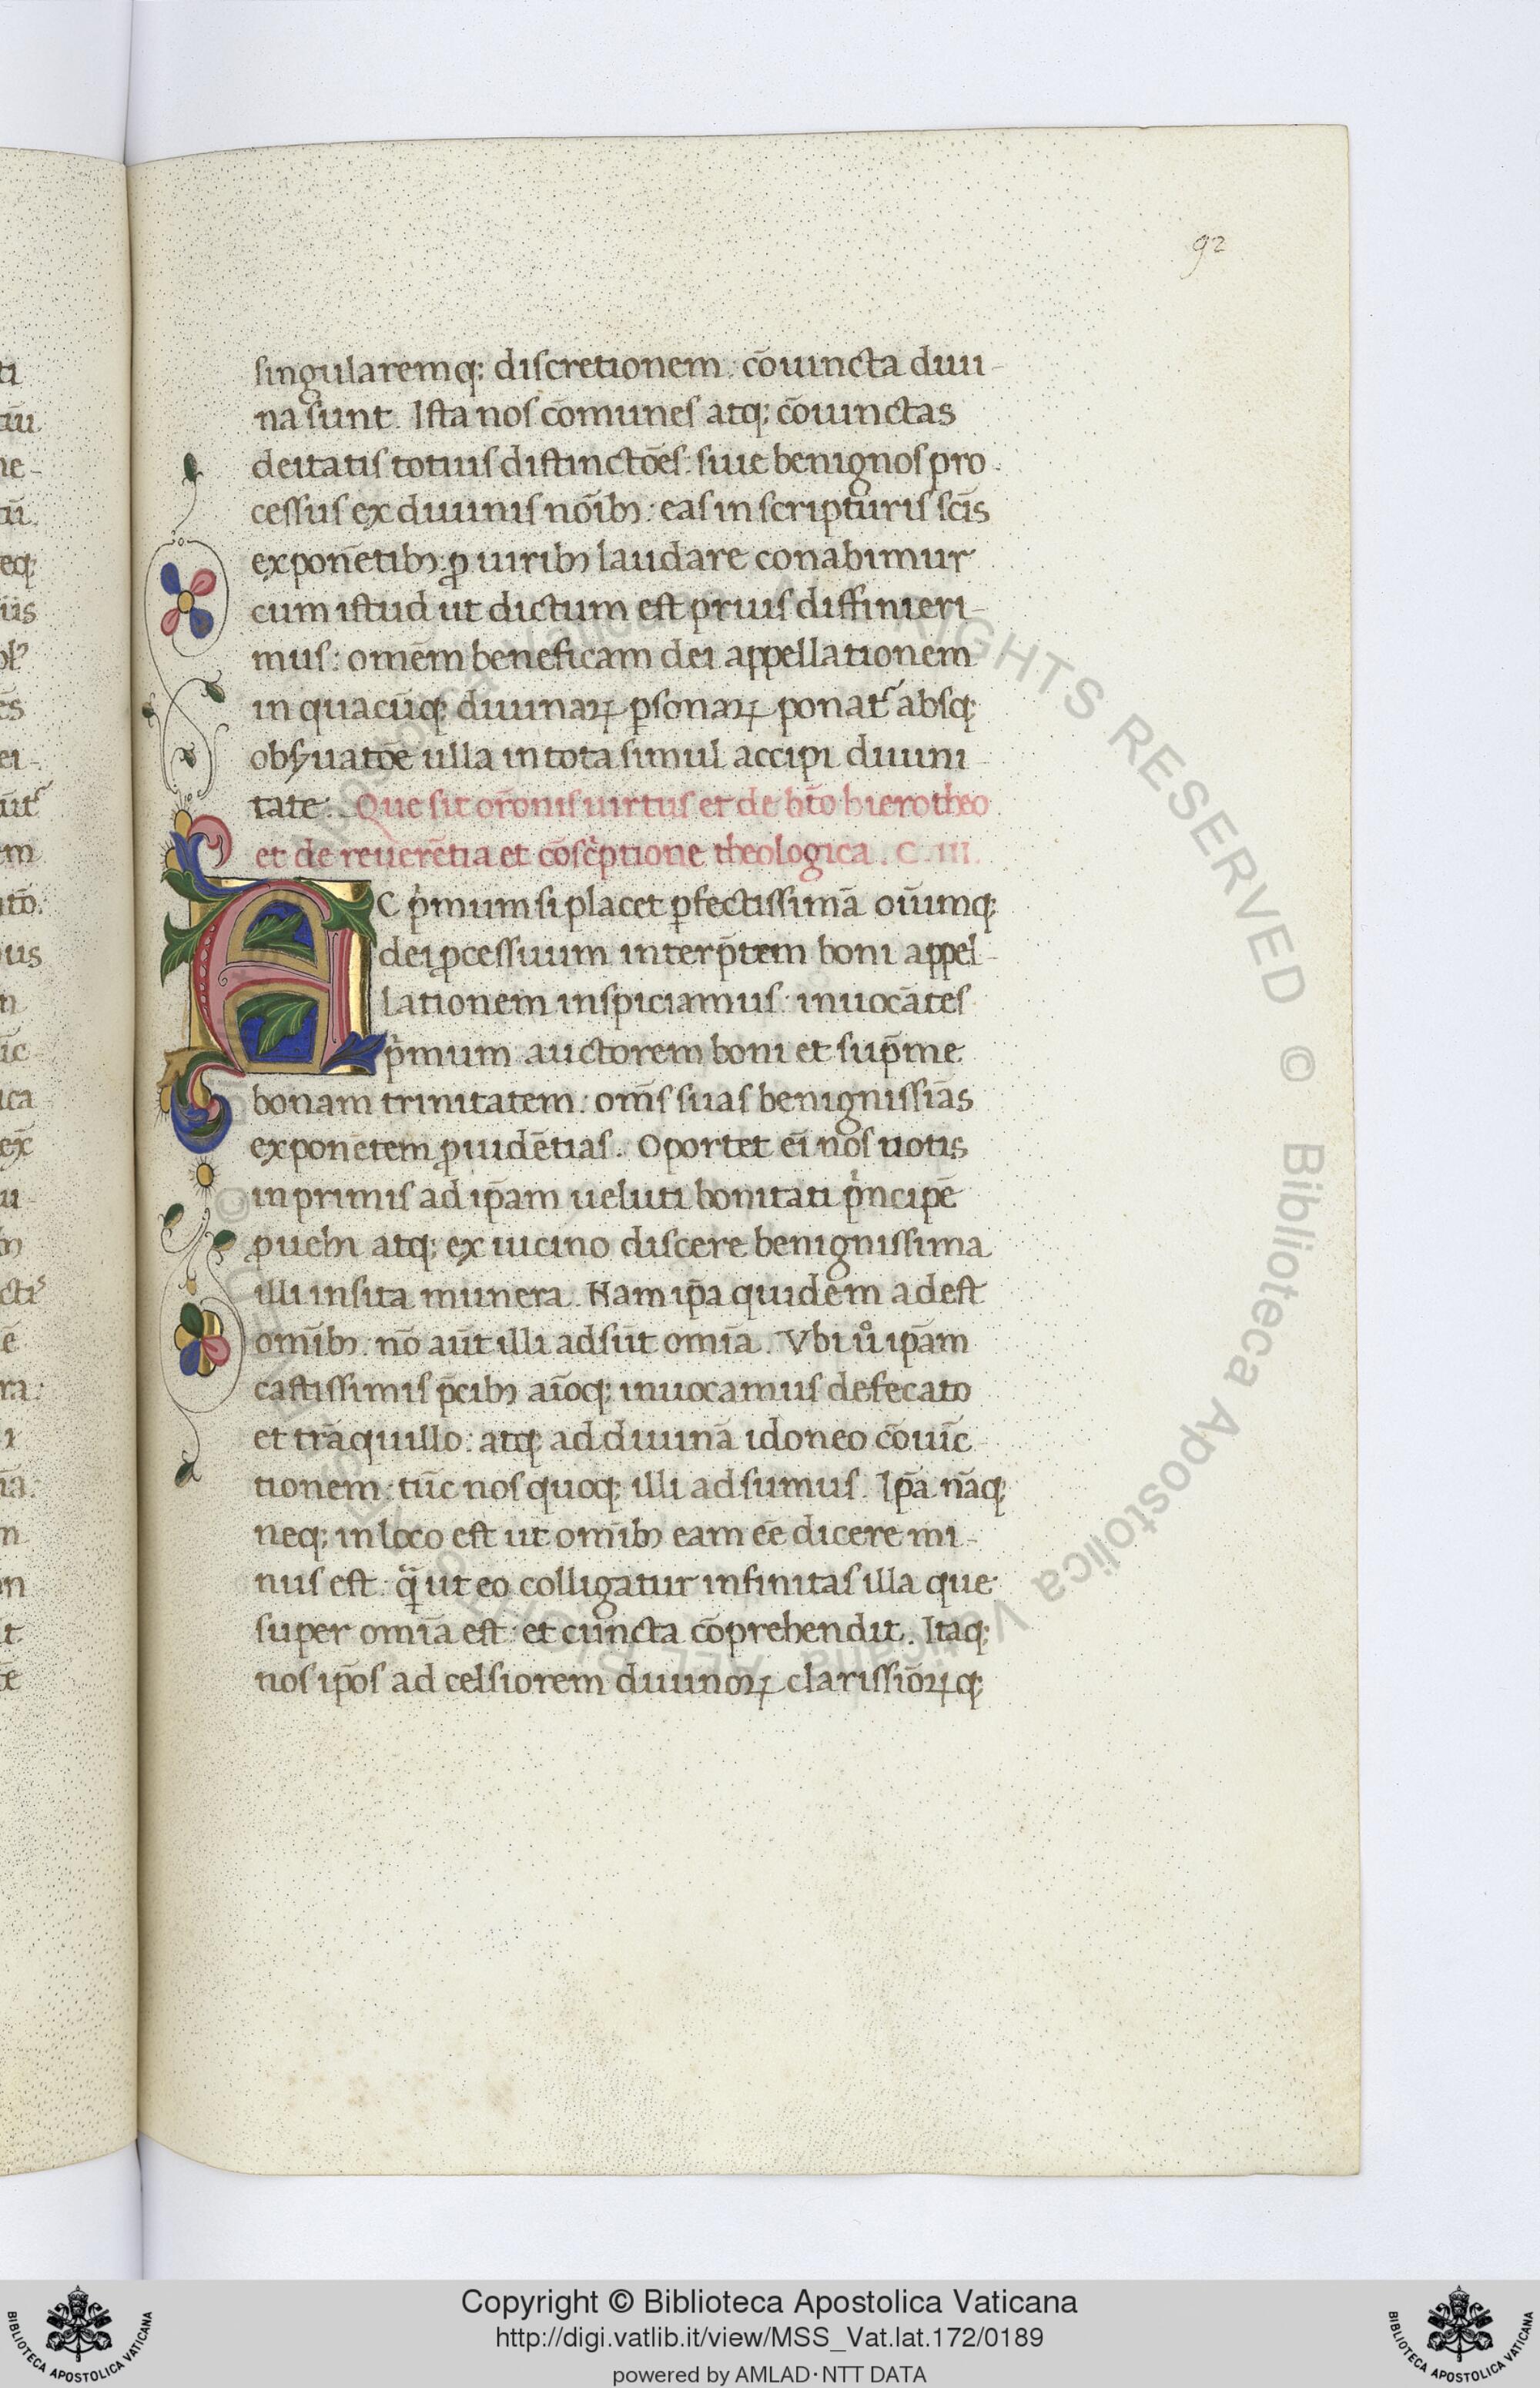 92
singularemq; discretionem: cõuincta diui-
na sunt. Ista nos cõmunes atq; cõuinctas
deitatis totius distinctões: siue benignos pro-
cessus ex diuinis noĩbꝫ: eas in scripturis scĩs
exponẽtibꝫ: ꝓ uiribꝫ laudare conabimur
cum istud ut dictum est prius diffinieri-
mus: omẽm beneficam dei appellationem
in quacũq; diuinaꝝ ꝑsonaꝝ ponat᷑ absq;
obẜuatõe ulla in tota simul accipi diuini-
tate. Que sit orõnis uirtus et de btõ hierotheo
et de reuerẽtia et cõscⁱptione theologica. C. III.
AC pⁱmum si placet ꝑfectissimã oũumq;
dei ꝓcessuum interp̃tem boni appel-
lationem inspiciamus: inuocãtes
pⁱmum auctorem boni et sup̃me
bonam trinitatem: om̃s suas benignissiãs
exponẽtem ꝓuidẽtias. Oportet ei̅ nos uotis
inprimis ad ip̃am ueluti bonitati pⁱncipẽ
ꝓuehi atq; ex uicino discere benignissima
illi insita munera. Nam ip̃a quidem adest
omĩbꝫ. nõ aũt illi adsũt omĩa. Vbi uͦ ip̃am
castissimis p̃cibꝫ aĩoq; inuocamus defecato
et trãquillo: atq; ad diuinã idoneo cõuĩc-
tionem: tũc nos quoq; illi adsumus. Ip̃a nãq;
neq; in loco est ut omĩbꝫ eam eẽ dicere mi-
nus est: ꝙ̃ ut eo colligatur infinitas illa que
super omĩa est: et cuncta cõprehendit. Itaq;
nos ip̃os ad celsiorem diuinoꝝ clarissiõꝝq;
Copyright © Biblioteca Apostolica Vaticana
http://digi.vatlib.it/view/MSS_Vat.lat.172/0189
powered by AMLAD·NTT DATA
BIBLIOTECA APOSTOLICA VATICANA
BIBLIOTECA APOSTOLICA VATICANA